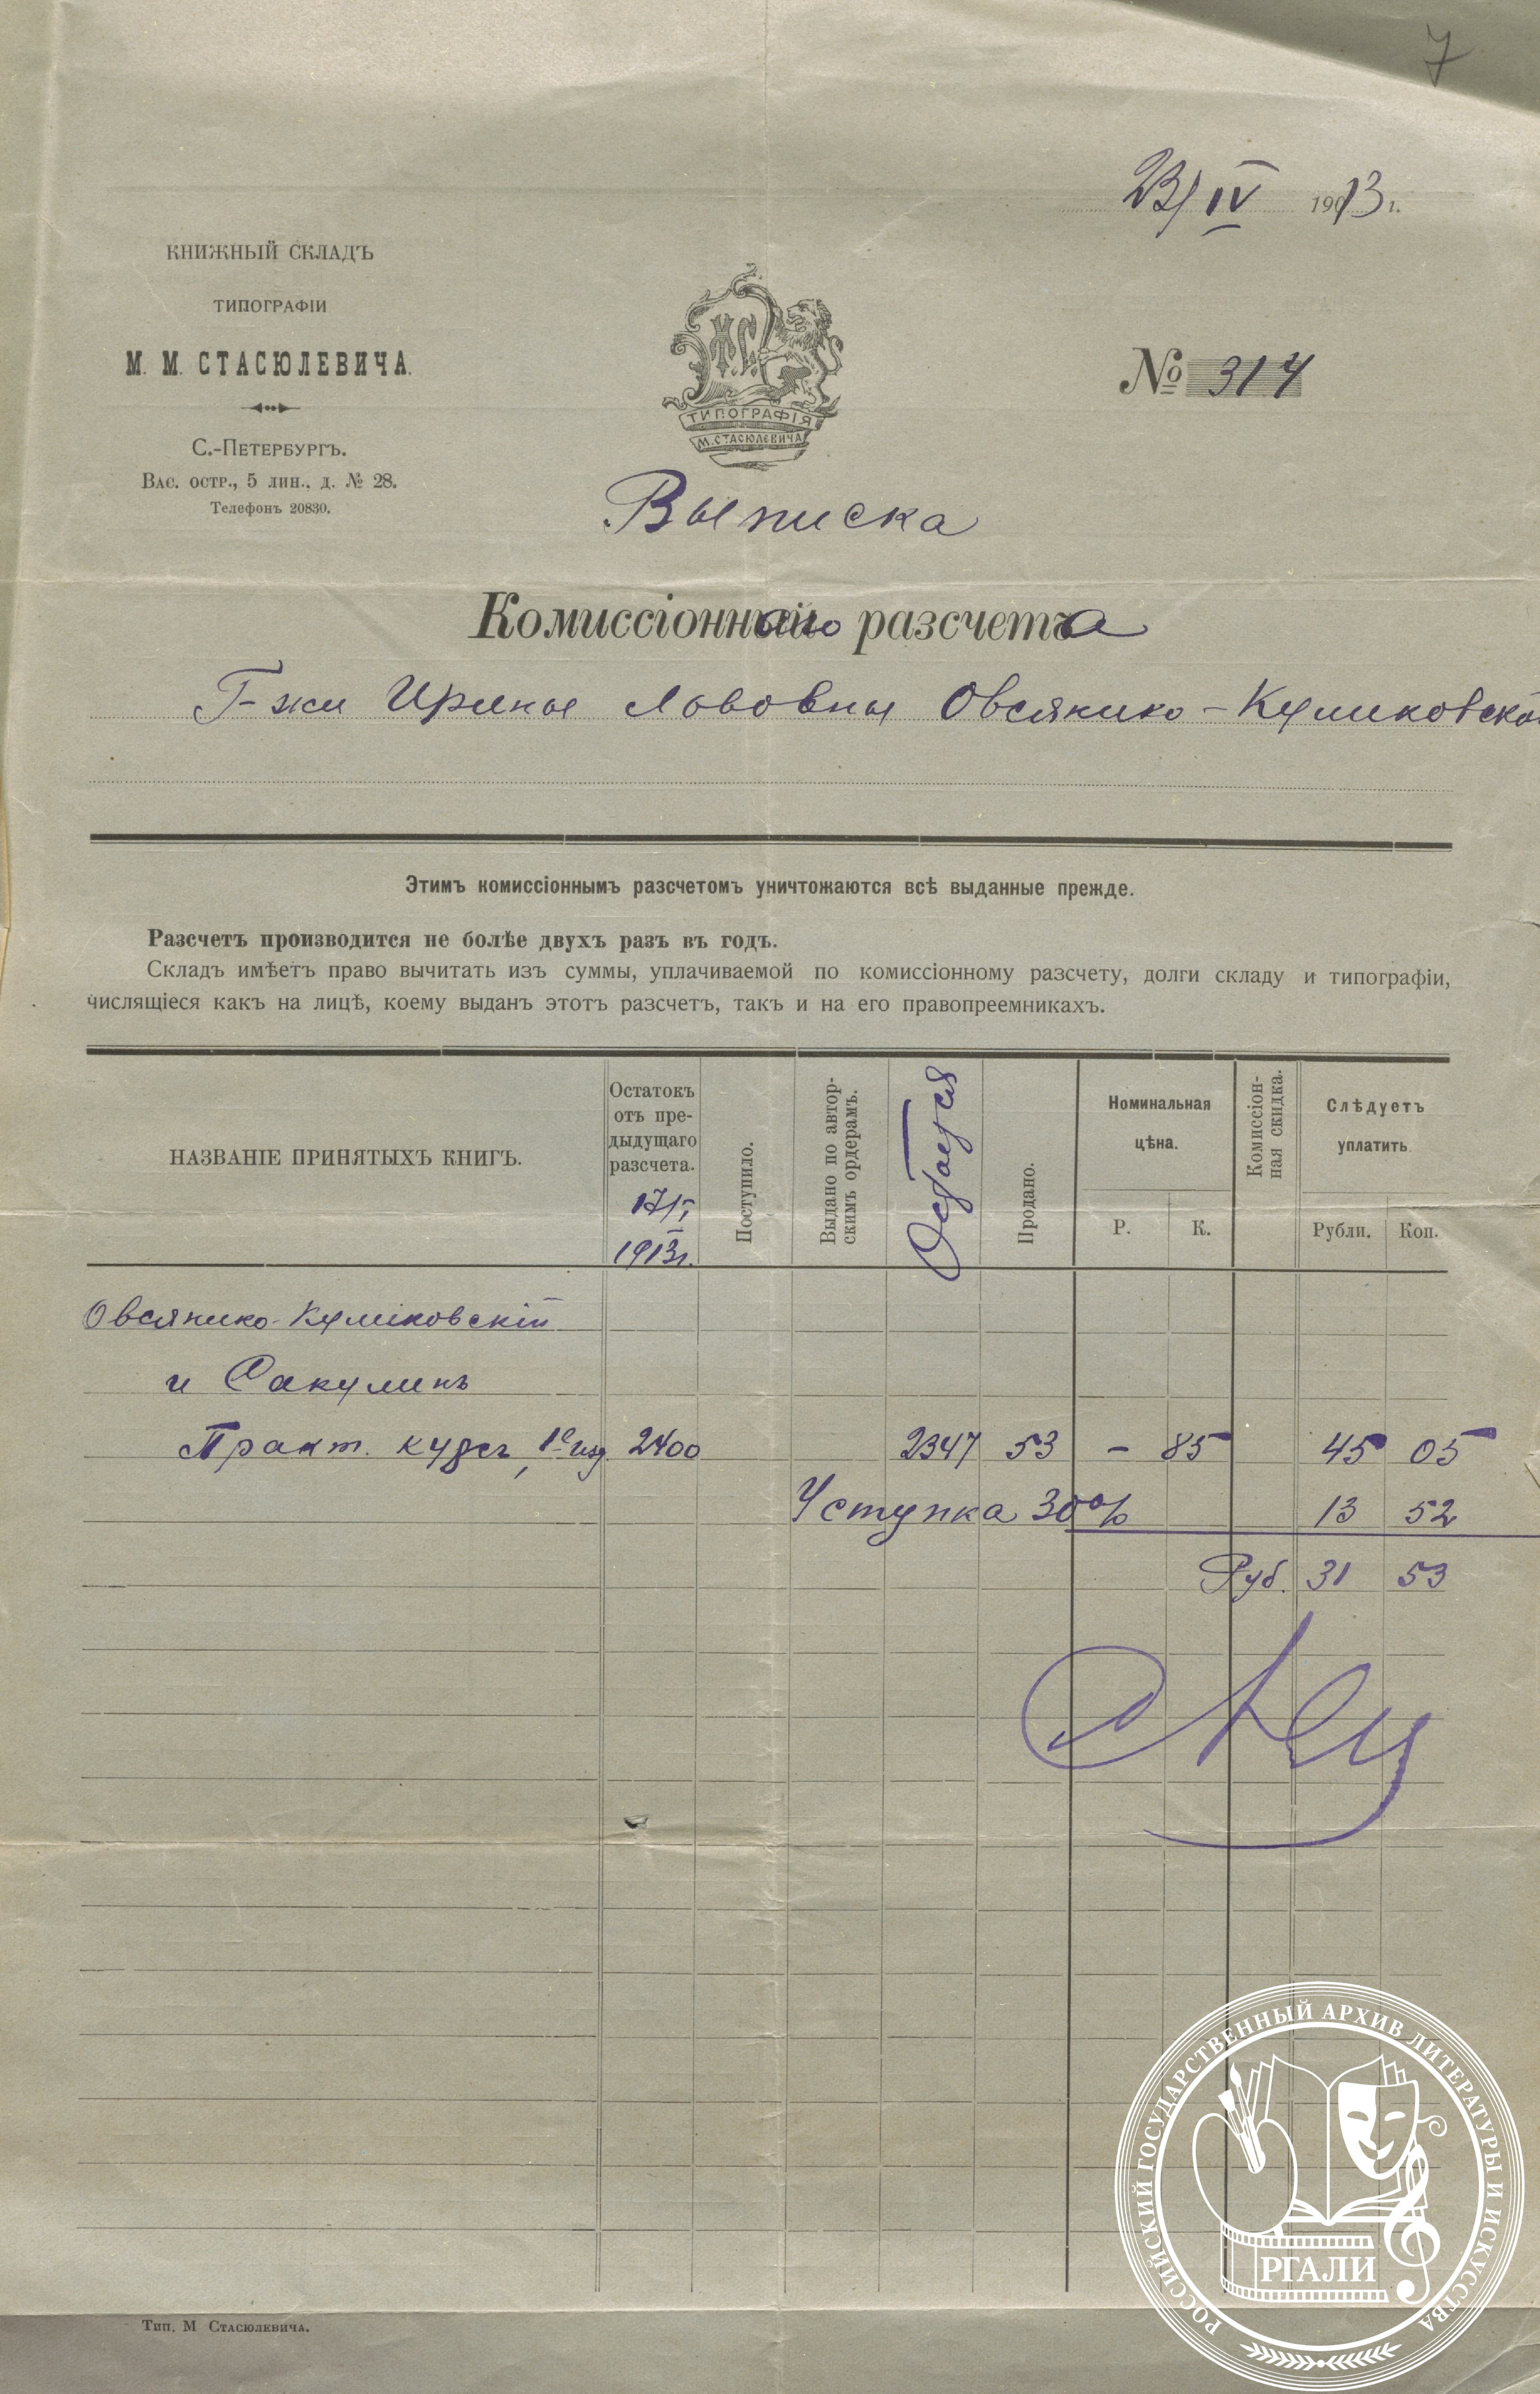 7
23/IV 1913 г.
КНИЖНЫЙ СКЛАДЪ
ТИПОГРАФІИ
М. М. СТАСЮЛЕВИЧА.
С.-ПЕТЕРБУРГЪ.
ВАС. ОСТР., 5 ЛИН., Д. № 28.
Телефонъ 20830.
М.С.
ТИПОГРАФІЯ
М. СТАСЮЛЕВИЧА
№ 314
Выписка
Комиссіоннаго разсчета
Г-жи Ирины Львовны Овсянико-Куликовской
Этимъ комиссіоннымъ разсчетомъ уничтожаются всѣ выданные прежде.
Разсчетъ производится не болѣе двухъ разъ въ годъ.
Складъ имѣетъ право вычитать изъ суммы, уплачиваемой по комиссіонному разсчету, долги складу и типографіи,
числящіеся какъ на лицѣ, коему выданъ этотъ разсчетъ, такъ и на его правопреемникахъ.
НАЗВАНІЕ ПРИНЯТЫХЪ КНИГЪ.
Остатокъ
отъ пре-
дыдущаго
разсчета.
17/I
1913г.
Поступило.
Выдано по автор-
скимъ ордерамъ.
Остается
Продано.
Номинальная
цѣна.
Р. К.
Комиссіон-
ная скидка.
Слѣдуетъ
уплатить
Рубли. Коп.
Овсянико-Куликовскій
и Сакулинъ
Практ. курсъ, 1е изд. 2400 2347 53 — 85 45 05
Уступка 30% 13 52
Руб. 31 53
Тип. М Стасюлевича.
РОССИЙСКИЙ ГОСУДАРСТВЕННЫЙ АРХИВ ЛИТЕРАТУРЫ И ИСКУССТВА
РГАЛИ